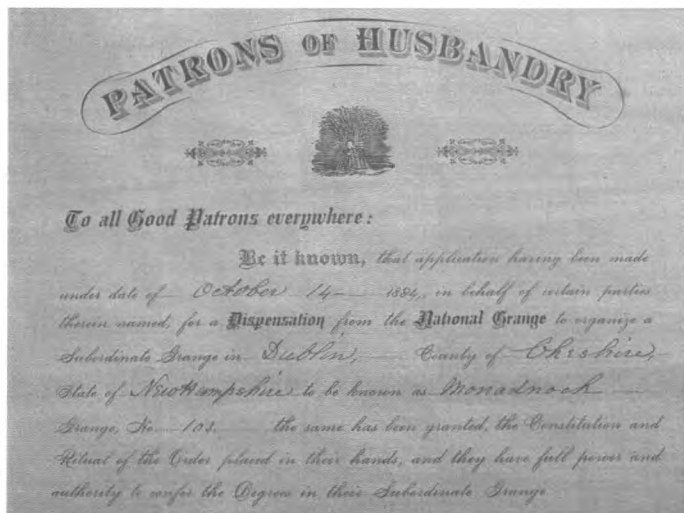 PATRONS OF HUSBANDRY
To all Good Patrons everywhere:
Be it known, that application having been made
under date of October 14 1884, in behalf of certain parties
therein named, for a Dispensation from the National Grange to organize a
Subordinate Grange in Dublin, County of Cheshire,
State of New Hampshire to be known as Monadnock
Grange, No. 103. the same has been granted, the Constitution and
Ritual of the Order placed in their hands, and they have full power and
authority to confer the Degrees in their Subordinate Grange.